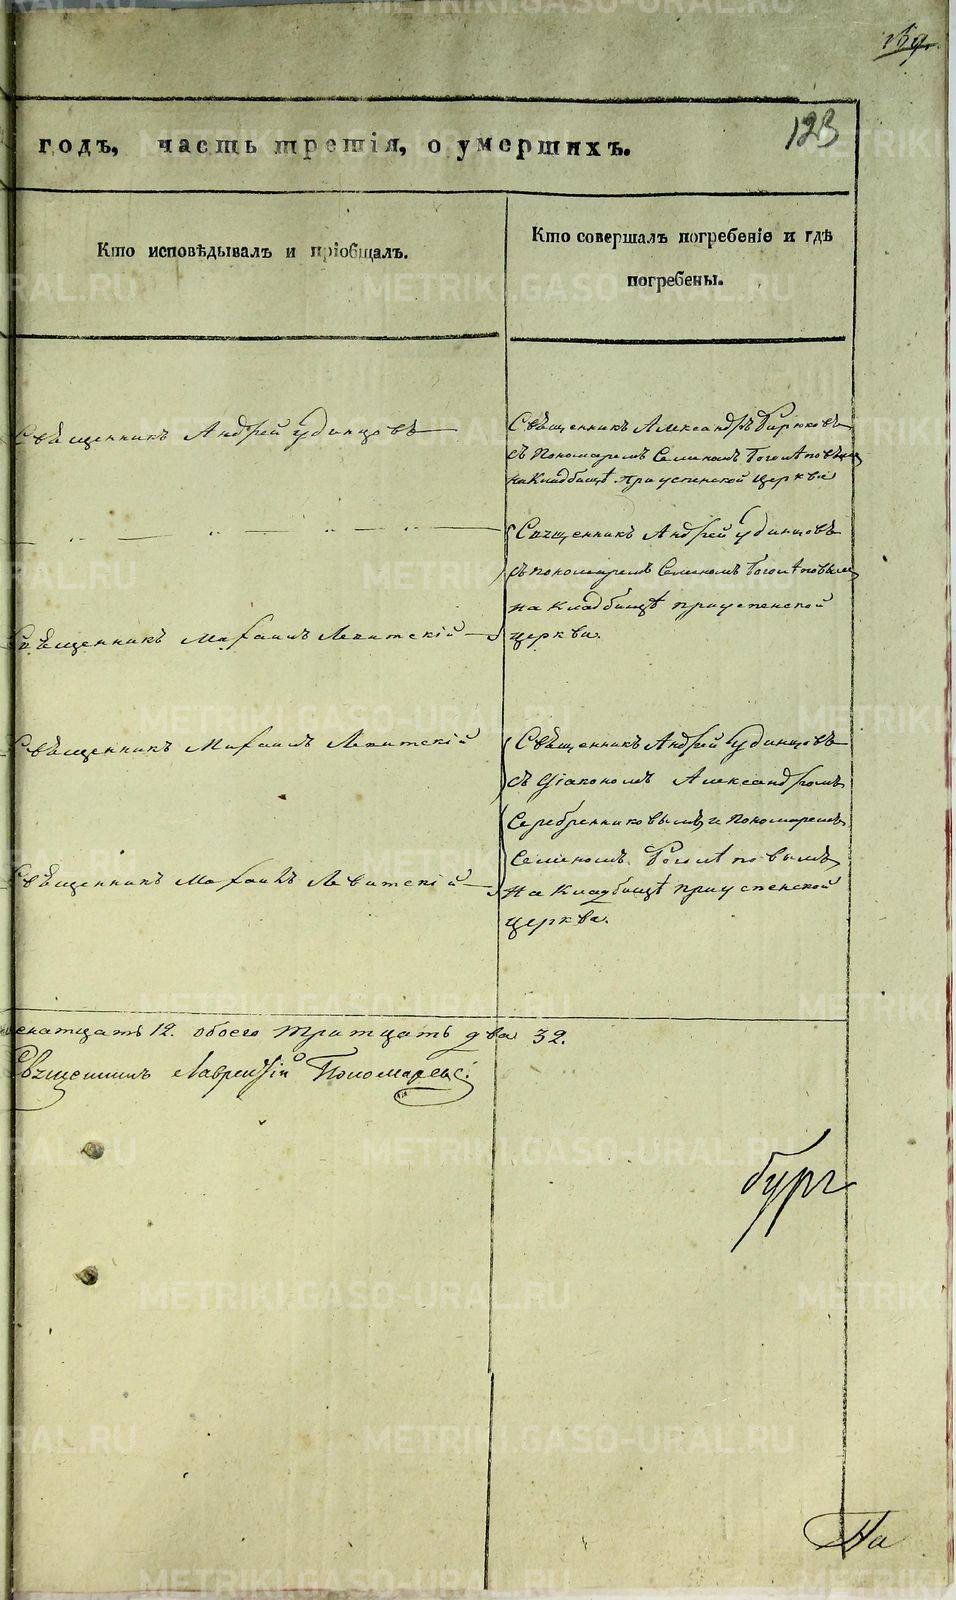 123
годъ, часть третія, о умершихъ.
Кто исповѣдывалъ и пріобщалъ.
Кто совершалъ погребеніе и гдѣ
погребены.
Священникъ Андрей Удинцовъ
Священникъ Александръ Бирюковъ
съ Пономаремъ Семеномъ
на Кладбищѣ при успенской церкви
Священникъ Андрей Удинцовъ
съ пономаремъ Семеномъ
на Кладбищѣ при успенской
церкви.
Священникъ Михаилъ Левитскій
Священникъ Михаилъ Левитскій
Священникъ Андрей Удинцовъ
съ Діакономъ Александромъ
Серебренниковымъ и Пономаремъ
Семеномъ
на Кладбищѣ при успенской
церкви.
Священникъ Михаилъ Левитскій
енатцать 12. обоего тритцать два 32.
Священникъ Лаврентій Пономаревъ.
бург
На
METRIKI.GASO-URAL.RU